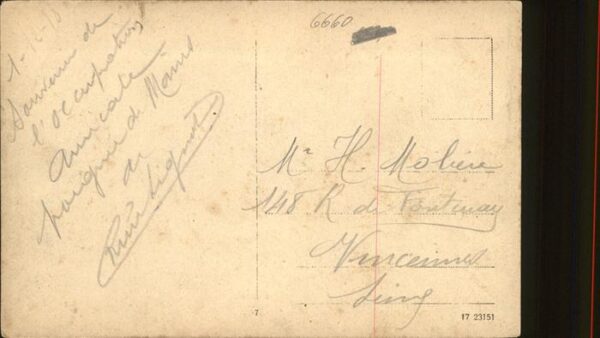 6660
Souvenir de
l'Occupation
Amicale
poignée de Mains
de
Mr H. Molière
148 R de Fontenay
Vincennes
Seine
7
17 23151